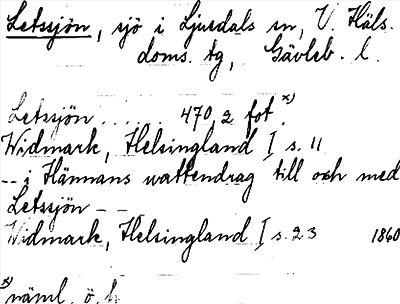 Letssjön, sjö i Ljusdals sn, V. Häls.
doms. tg, Gävleb. l.
Letssjön . . . . . . 470,2 fot. x)
Widmark, Helsingland I s. 11
-- i Hännans wattendrag till och med
Letssjön --
Widmark, Helsingland I s. 23 1860
x) näml. ö. h